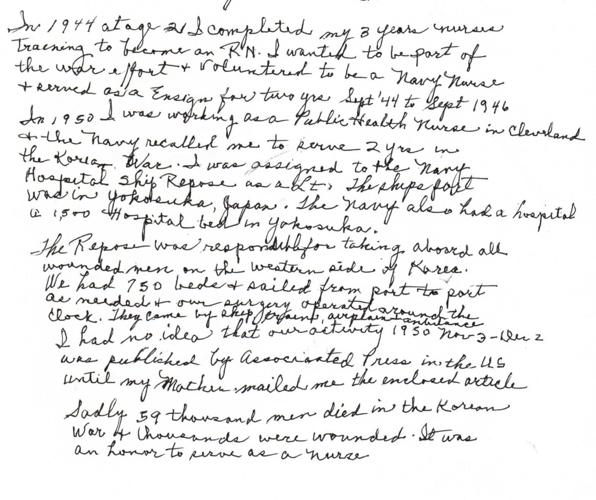 In 1944 at age 21 I completed my 3 years nurses
Training to become an R.N. I wanted to be part of
the war effort + Voluntered to be a Navy Nurse
+ served as a Ensign for two yrs Sept '44 to Sept 1946
In 1950 I was working as a Public Health Nurse in Cleveland
+ the Navy recalled me to serve 2 yrs in
the Korean War. I was assigned to the Navy
Hospital Ship Repose as a Lt. The ships port
was in Yokosuka, Japan. The Navy also had a hospital
a 1,500 Hospital bed in Yokosuka.
The Repose was responsible for taking aboard all
wounded men on the western side of Korea.
We had 750 beds + sailed from port to port
as needed + our surgery operated around the
clock. They came by ship, trains, airplain + ambulance
I had no idea that our activity 1950 Nov 3 - Dec 2
was published by Associanted Press in the US
until my Mother mailed me the enclosed article
Sadly 59 thousand men died in the Korean
War + thousands were wounded. It was
an honor to serve as a nurse